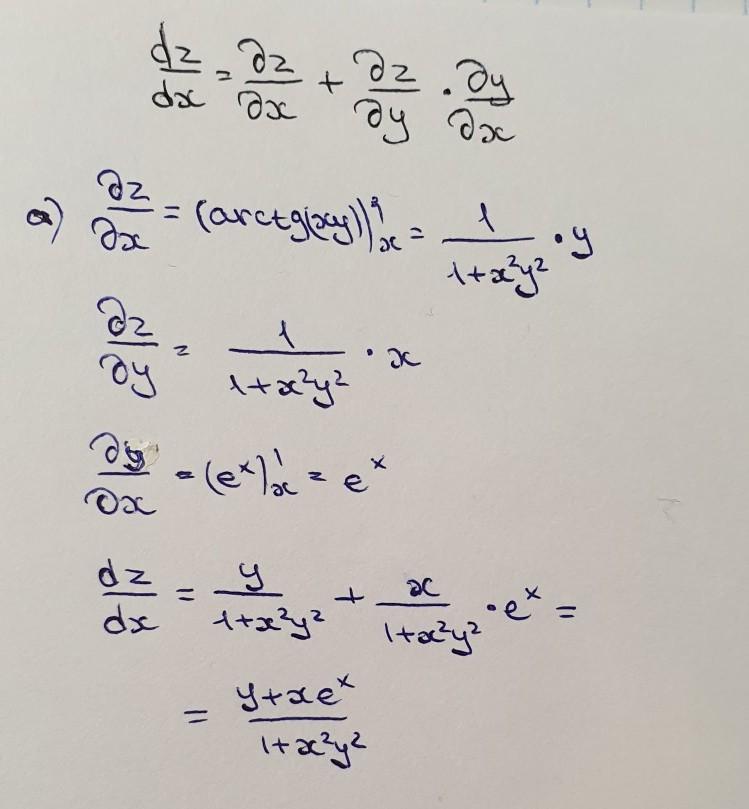 dz/dx = ∂z/∂x + ∂z/∂y · ∂y/∂x
a) ∂z/∂x = (arctg(xy))'ₓ = 1/(1+x²y²) · y
∂z/∂y = 1/(1+x²y²) · x
∂y/∂x = (eˣ)'ₓ = eˣ
dz/dx = y/(1+x²y²) + x/(1+x²y²) · eˣ =
= (y+xeˣ)/(1+x²y²)